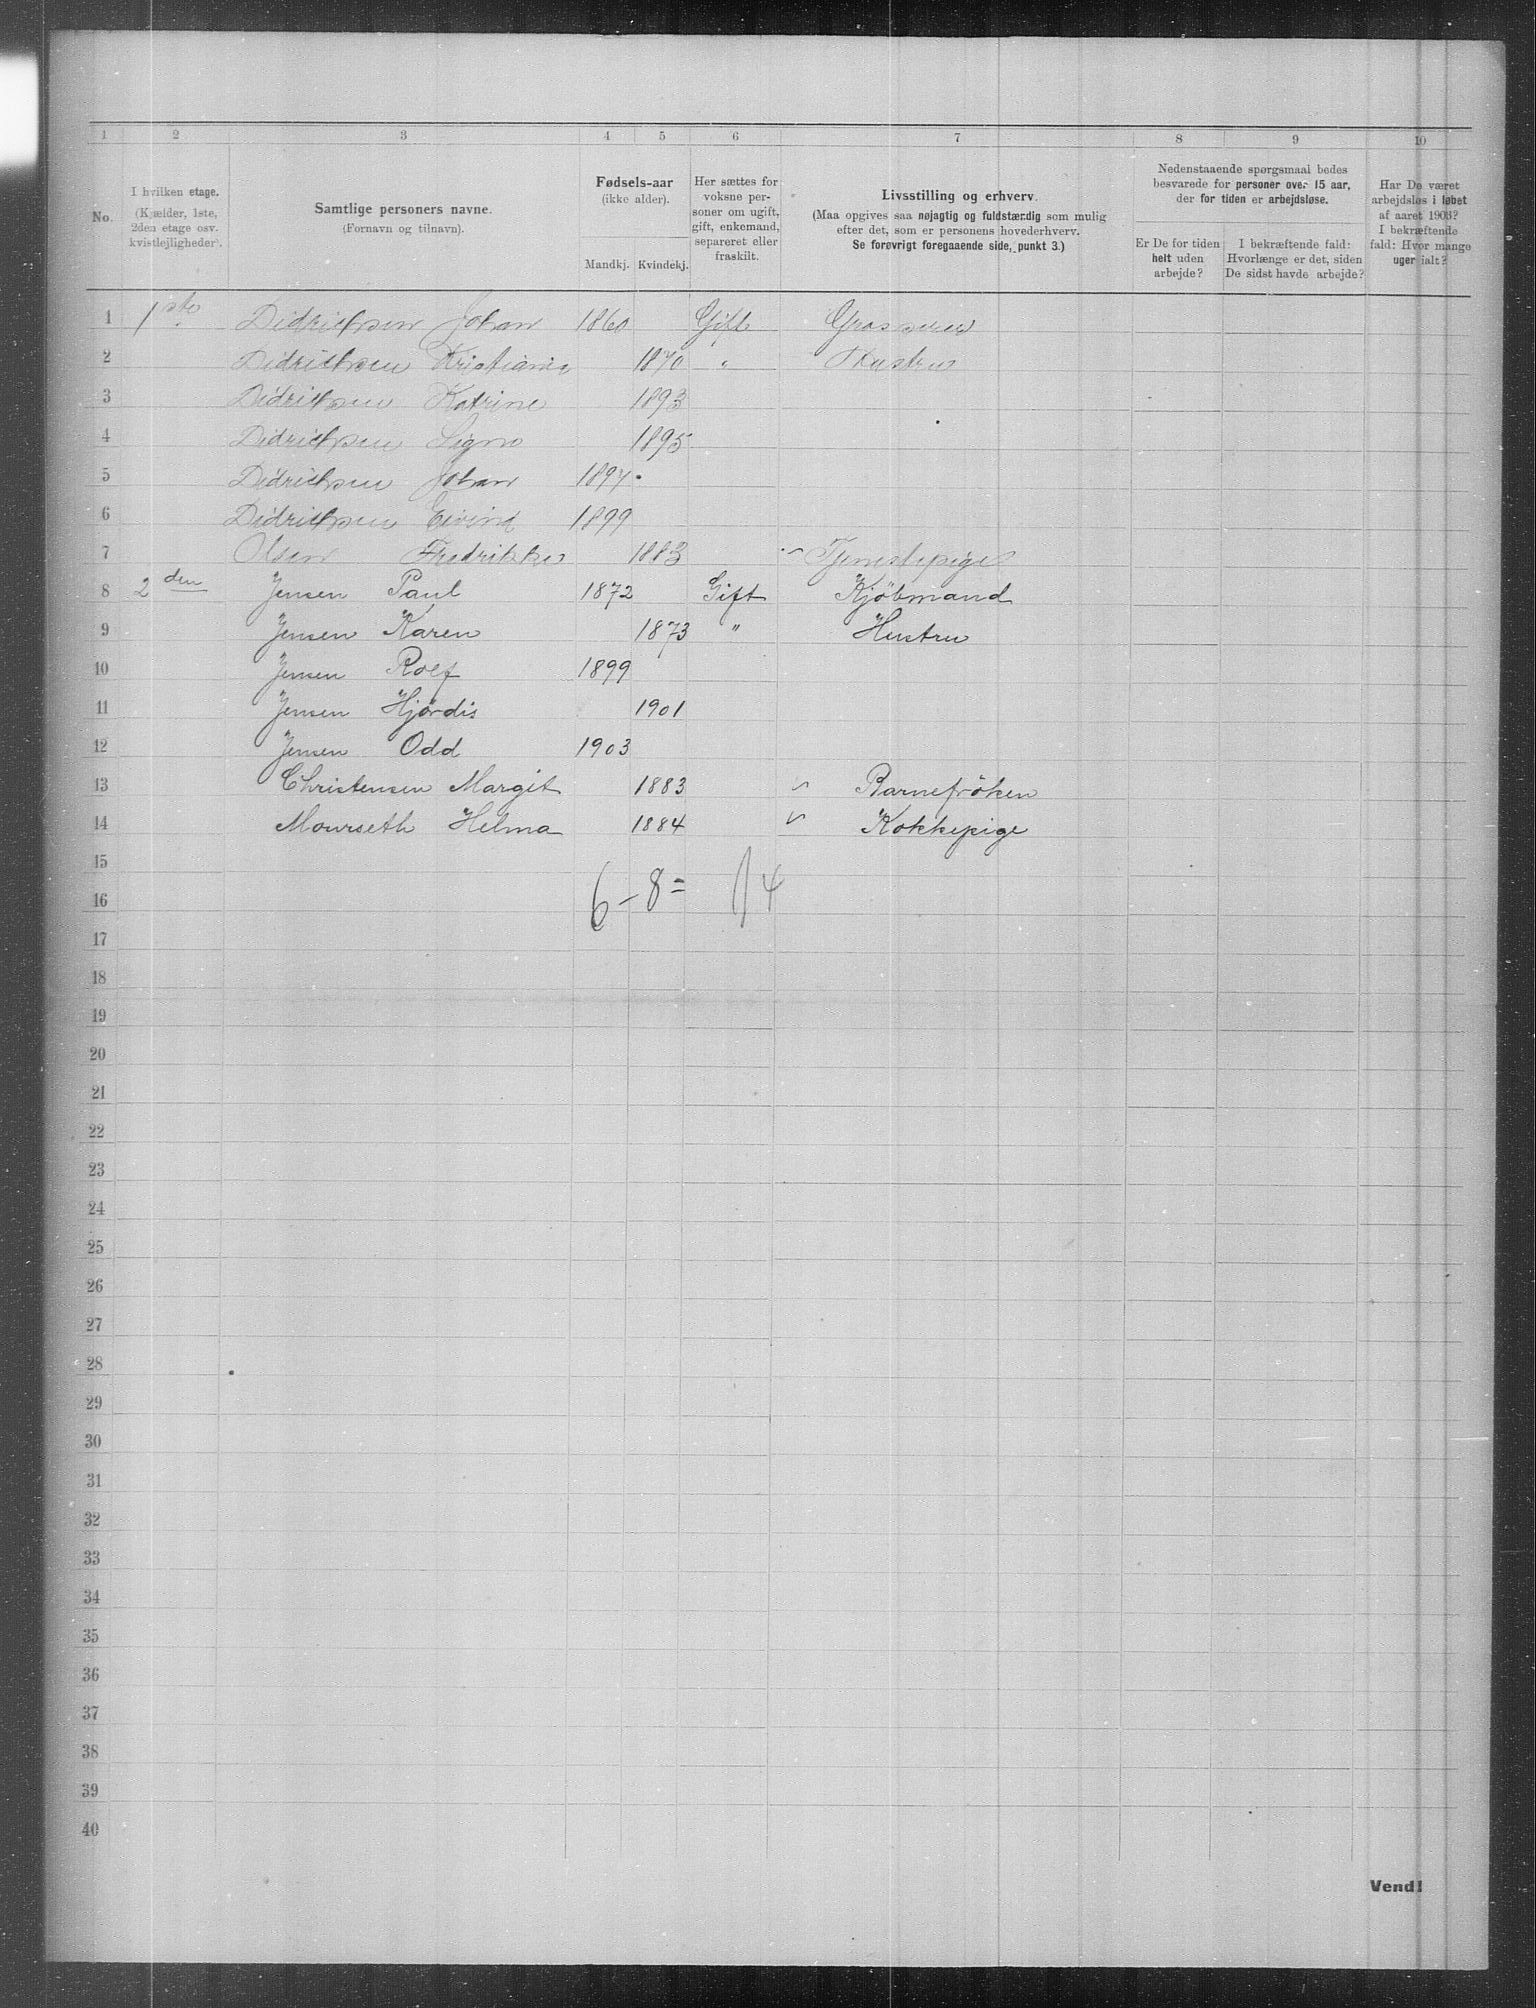 1 2 3 4 5 6 7 8 9 10
No.
I hvilken etage.
(Kjælder, 1ste,
2den etage osv.
kvistlejligheder).
Samtlige personers navne.
(Fornavn og tilnavn).
Fødsels-aar
(ikke alder).
Mandkj. Kvindekj.
Her sættes for
voksne per-
soner om ugift,
gift, enkemand,
separeret eller
fraskilt.
Livsstilling og erhverv.
(Maa opgives saa nøjagtig og fuldstændig som mulig
efter det, som er personens hovederhverv.
Se forøvrigt foregaaende side, punkt 3.)
Nedenstaaende spørgsmaal bedes
besvarede for personer over 15 aar,
der for tiden er arbejdsløse.
Er De for tiden
helt uden
arbejde?
I bekræftende fald:
Hvorlænge er det, siden
De sidst havde arbejde?
Har De været
arbejdsløs i løbet
af aaret 1903?
I bekræftende
fald: Hvor mange
uger ialt?
1 1ste Didrichsen Johan 1860 Gift Grosserer
2 Didrichsen Kristiania 1870 " Hustru
3 Didrichsen Katrine 1893
4 Didrichsen Signe 1895
5 Didrichsen Johan 1897
6 Didrichsen Eivind 1899
7 Olsen Fredrikke 1883 Tjenestepige
8 2den Jensen Paul 1872 Gift Kjøbmand
9 Jensen Karen 1873 " Hustru
10 Jensen Rolf 1899
11 Jensen Hjørdis 1901
12 Jensen Odd 1903
13 Christensen Margit 1883 Barnefrøken
14 Mourseth Helma 1884 Kokkepige
15
6 - 8 = 14
16
17
18
19
20
21
22
23
24
25
26
27
28
29
30
31
32
33
34
35
36
37
38
39
40
Vend!